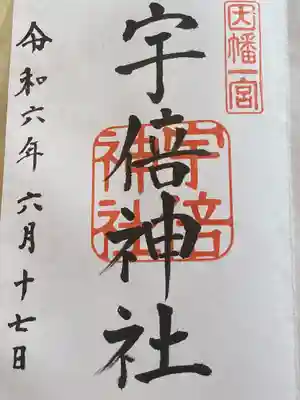 因幡一宮
宇倍神社
宇倍神社
令和六年六月十七日